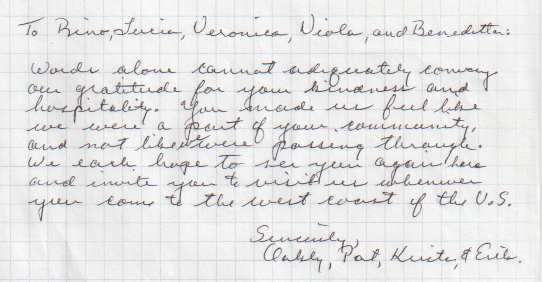 To Rino, Lucia, Veronica, Viola, and Benedetta:
Words alone cannot adequately convey
our gratitude for your kindness and
hospitality. You made us feel like
we were a part of your community,
and not like were passing through.
We each hope to see you again here
and invite you to visit us whenever
you come to the west coast of the U.S.
Sincerely,
Pat, & Erik.